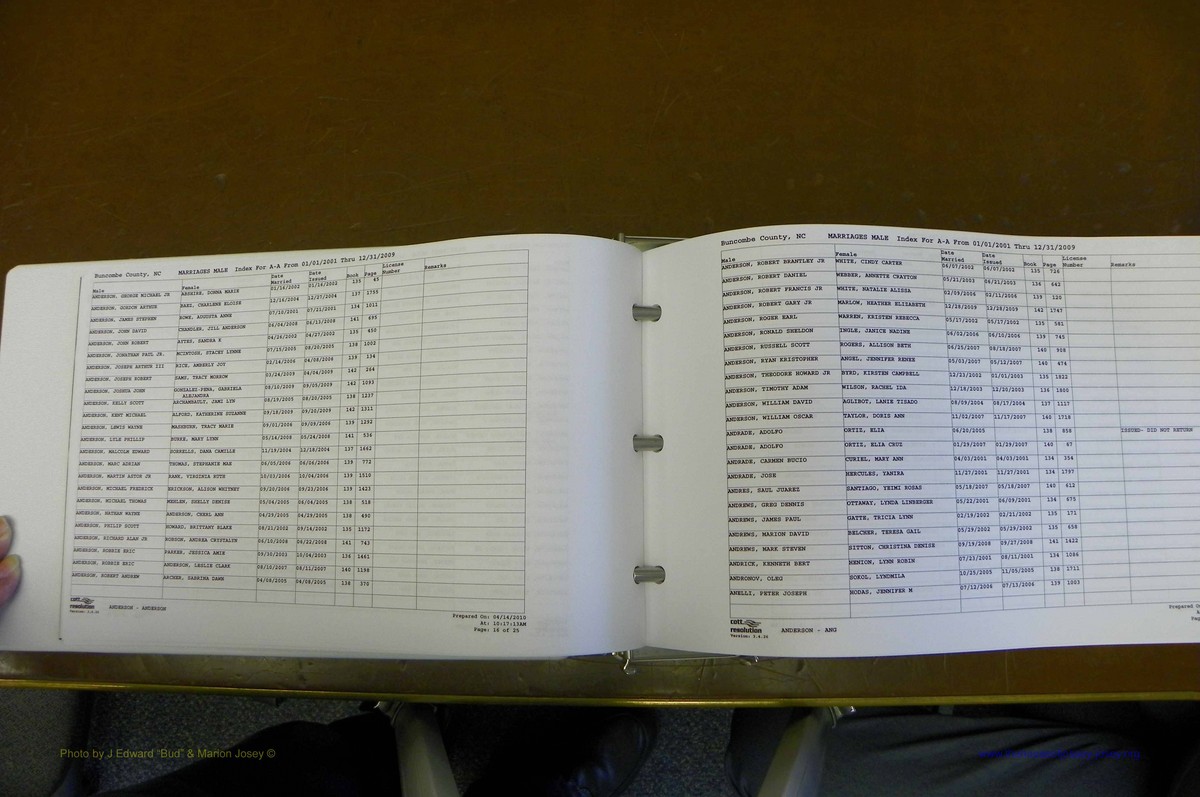 Buncombe County, NC MARRIAGES MALE Index For A-A From 01/01/2001 Thru 12/31/2009
Male Female Date Married Date Issued Book Page License Number Remarks
ANDERSON, GEORGE MICHAEL JR ABSHIRE, DONNA MARIE 01/16/2002 01/16/2002 135 43
ANDERSON, GORDON ARTHUR BAEZ, CHARLENE ELOISE 12/18/2004 12/27/2004 137 1755
ANDERSON, JAMES STEPHEN ROWE, AUGUSTA ANNE 07/10/2001 07/21/2001 134 1011
ANDERSON, JOHN DAVID CHANDLER, JILL ANDERSON 141 695
ANDERSON, JOHN ROBERT AYTES, SANDRA K 04/26/2002 04/27/2002 135 450
ANDERSON, JONATHAN PAUL JR. MCINTOSH, STACEY LYNNE 07/15/2005 08/20/2005 138 1002
ANDERSON, JOSEPH ARTHUR III RICE, AMBERLY JOY 02/14/2006 04/08/2006 139 134
ANDERSON, JOSEPH ROBERT SAMS, TRACY MORROW 03/24/2009 04/04/2009 142 264
ANDERSON, JOSHUA JOHN GONZALEZ-PENA, GABRIELA ALEJANDRA 08/10/2009 09/05/2009 142 1093
ANDERSON, KELLY SCOTT ARCHAMBAULT, JAMI LYN 08/19/2005 08/20/2005 138 1237
ANDERSON, KENT MICHAEL ALFORD, KATHERINE SUZANNE 09/18/2009 09/20/2009 142 1311
ANDERSON, LEWIS WAYNE MASHBURN, TRACY MARIE 09/01/2006 09/09/2006 139 1292
ANDERSON, LYLE PHILLIP BURKE, MARY LYNN 05/14/2008 05/24/2008 141 536
ANDERSON, MALCOLM EDWARD SORRELLS, DANA CAMILLE 11/19/2004 12/18/2004 137 1662
ANDERSON, MARC ADRIAN THOMAS, STEPHANIE MAE 06/05/2006 06/06/2006 139 772
ANDERSON, MARTIN ASTOR JR RANK, VIRGINIA RUTH 10/03/2006 10/04/2006 139 1510
ANDERSON, MICHAEL FREDRICK ERICKSON, ALISON WHITNEY 09/20/2006 09/23/2006 139 1423
ANDERSON, MICHAEL THOMAS MEHLEN, SHELLY DENISE 05/04/2005 06/04/2005 138 518
ANDERSON, NATHAN WAYNE ANDERSON, CHERL ANN 04/29/2005 04/29/2005 138 490
ANDERSON, PHILIP SCOTT HOWARD, BRITTANY BLAKE 08/21/2002 09/14/2002 135 1172
ANDERSON, RICHARD ALAN JR ROBSON, ANDREA CRYSTALYN 06/18/2008 06/22/2008 141 743
ANDERSON, ROBBIE ERIC PARKER, JESSICA AMIE 09/30/2003 10/04/2003 136 1461
ANDERSON, ROBBIE ERIC ANDERSON, LESLIE CLARK 08/10/2007 08/11/2007 140 1198
ANDERSON, ROBERT ANDREW ARCHER, SABRINA DAWN 04/08/2005 04/08/2005 138 370
cott
resolution
ANDERSON - ANDERSON
Prepared On: 04/14/2010
At: 10:17:13AM
Page: 16 of 25
Buncombe County, NC MARRIAGES MALE Index For A-A From 01/01/2001 Thru 12/31/2009
Male Female Date Married Date Issued Book Page License Number Remarks
ANDERSON, ROBERT BRANTLEY JR WHITE, CINDY CARTER 06/07/2002 06/07/2002 135 726
ANDERSON, ROBERT DANIEL WEBBER, ANNETTE CRAYTON 05/21/2003 06/21/2003 136 642
ANDERSON, ROBERT FRANCIS JR WHITE, NATALIE ALISSA 02/09/2006 02/11/2006 139 120
ANDERSON, ROBERT GARY JR MARLOW, HEATHER ELIZABETH 12/28/2009 12/28/2009 142 1747
ANDERSON, ROGER EARL WARREN, KRISTEN REBECCA 05/17/2002 05/17/2002 135 581
ANDERSON, RONALD SHELDON INGLE, JANICE NADINE 06/02/2006 06/10/2006 139 745
ANDERSON, RUSSELL SCOTT ROGERS, ALLISON BETH 06/25/2007 08/18/2007 140 908
ANDERSON, RYAN KRISTOPHER ANGEL, JENNIFER RENEE 05/03/2007 05/12/2007 140 474
ANDERSON, THEODORE HOWARD JR BYRD, KIRSTEN CAMPBELL 12/23/2002 01/01/2003 135 1822
ANDERSON, TIMOTHY ADAM WILSON, RACHEL IDA 12/18/2003 12/20/2003 136 1800
ANDERSON, WILLIAM DAVID AGLIBOT, LANIE TISADO 08/09/2004 08/17/2004 137 1117
ANDERSON, WILLIAM OSCAR TAYLOR, DORIS ANN 11/02/2007 11/17/2007 140 1718
ANDRADE, ADOLFO ORTIZ, ELIA 06/20/2005 138 858 ISSUED- DID NOT RETURN
ANDRADE, ADOLFO ORTIZ, ELIA CRUZ 01/29/2007 01/29/2007 140 67
ANDRADE, CARMEN BUCIO CURIEL, MARY ANN 04/03/2001 04/03/2001 134 354
ANDRADE, JOSE HERCULES, YANIRA 11/27/2001 11/27/2001 134 1797
ANDRES, SAUL JUAREZ SANTIAGO, YEIMI ROSAS 05/18/2007 05/18/2007 140 612
ANDREWS, GREG DENNIS OTTAWAY, LYNDA LINBERGER 05/22/2001 06/09/2001 134 675
ANDREWS, JAMES PAUL GATTE, TRICIA LYNN 02/19/2002 02/21/2002 135 171
ANDREWS, MARION DAVID BELCHER, TERESA GAIL 05/29/2002 05/29/2002 135 658
ANDREWS, MARK STEVEN SITTON, CHRISTINA DENISE 09/19/2008 09/27/2008 141 1422
ANDRICK, KENNETH BERT HENION, LYNN ROBIN 07/23/2001 08/11/2001 134 1086
ANDRONOV, OLEG SOKOL, LYUDMILA 10/25/2005 11/05/2005 138 1711
ANELLI, PETER JOSEPH HODAS, JENNIFER M 07/12/2006 07/13/2006 139 1003
cott
resolution
Version: 3.4.24
ANDERSON - ANG
Photo by J.Edward "Bud" & Marion Josey ©